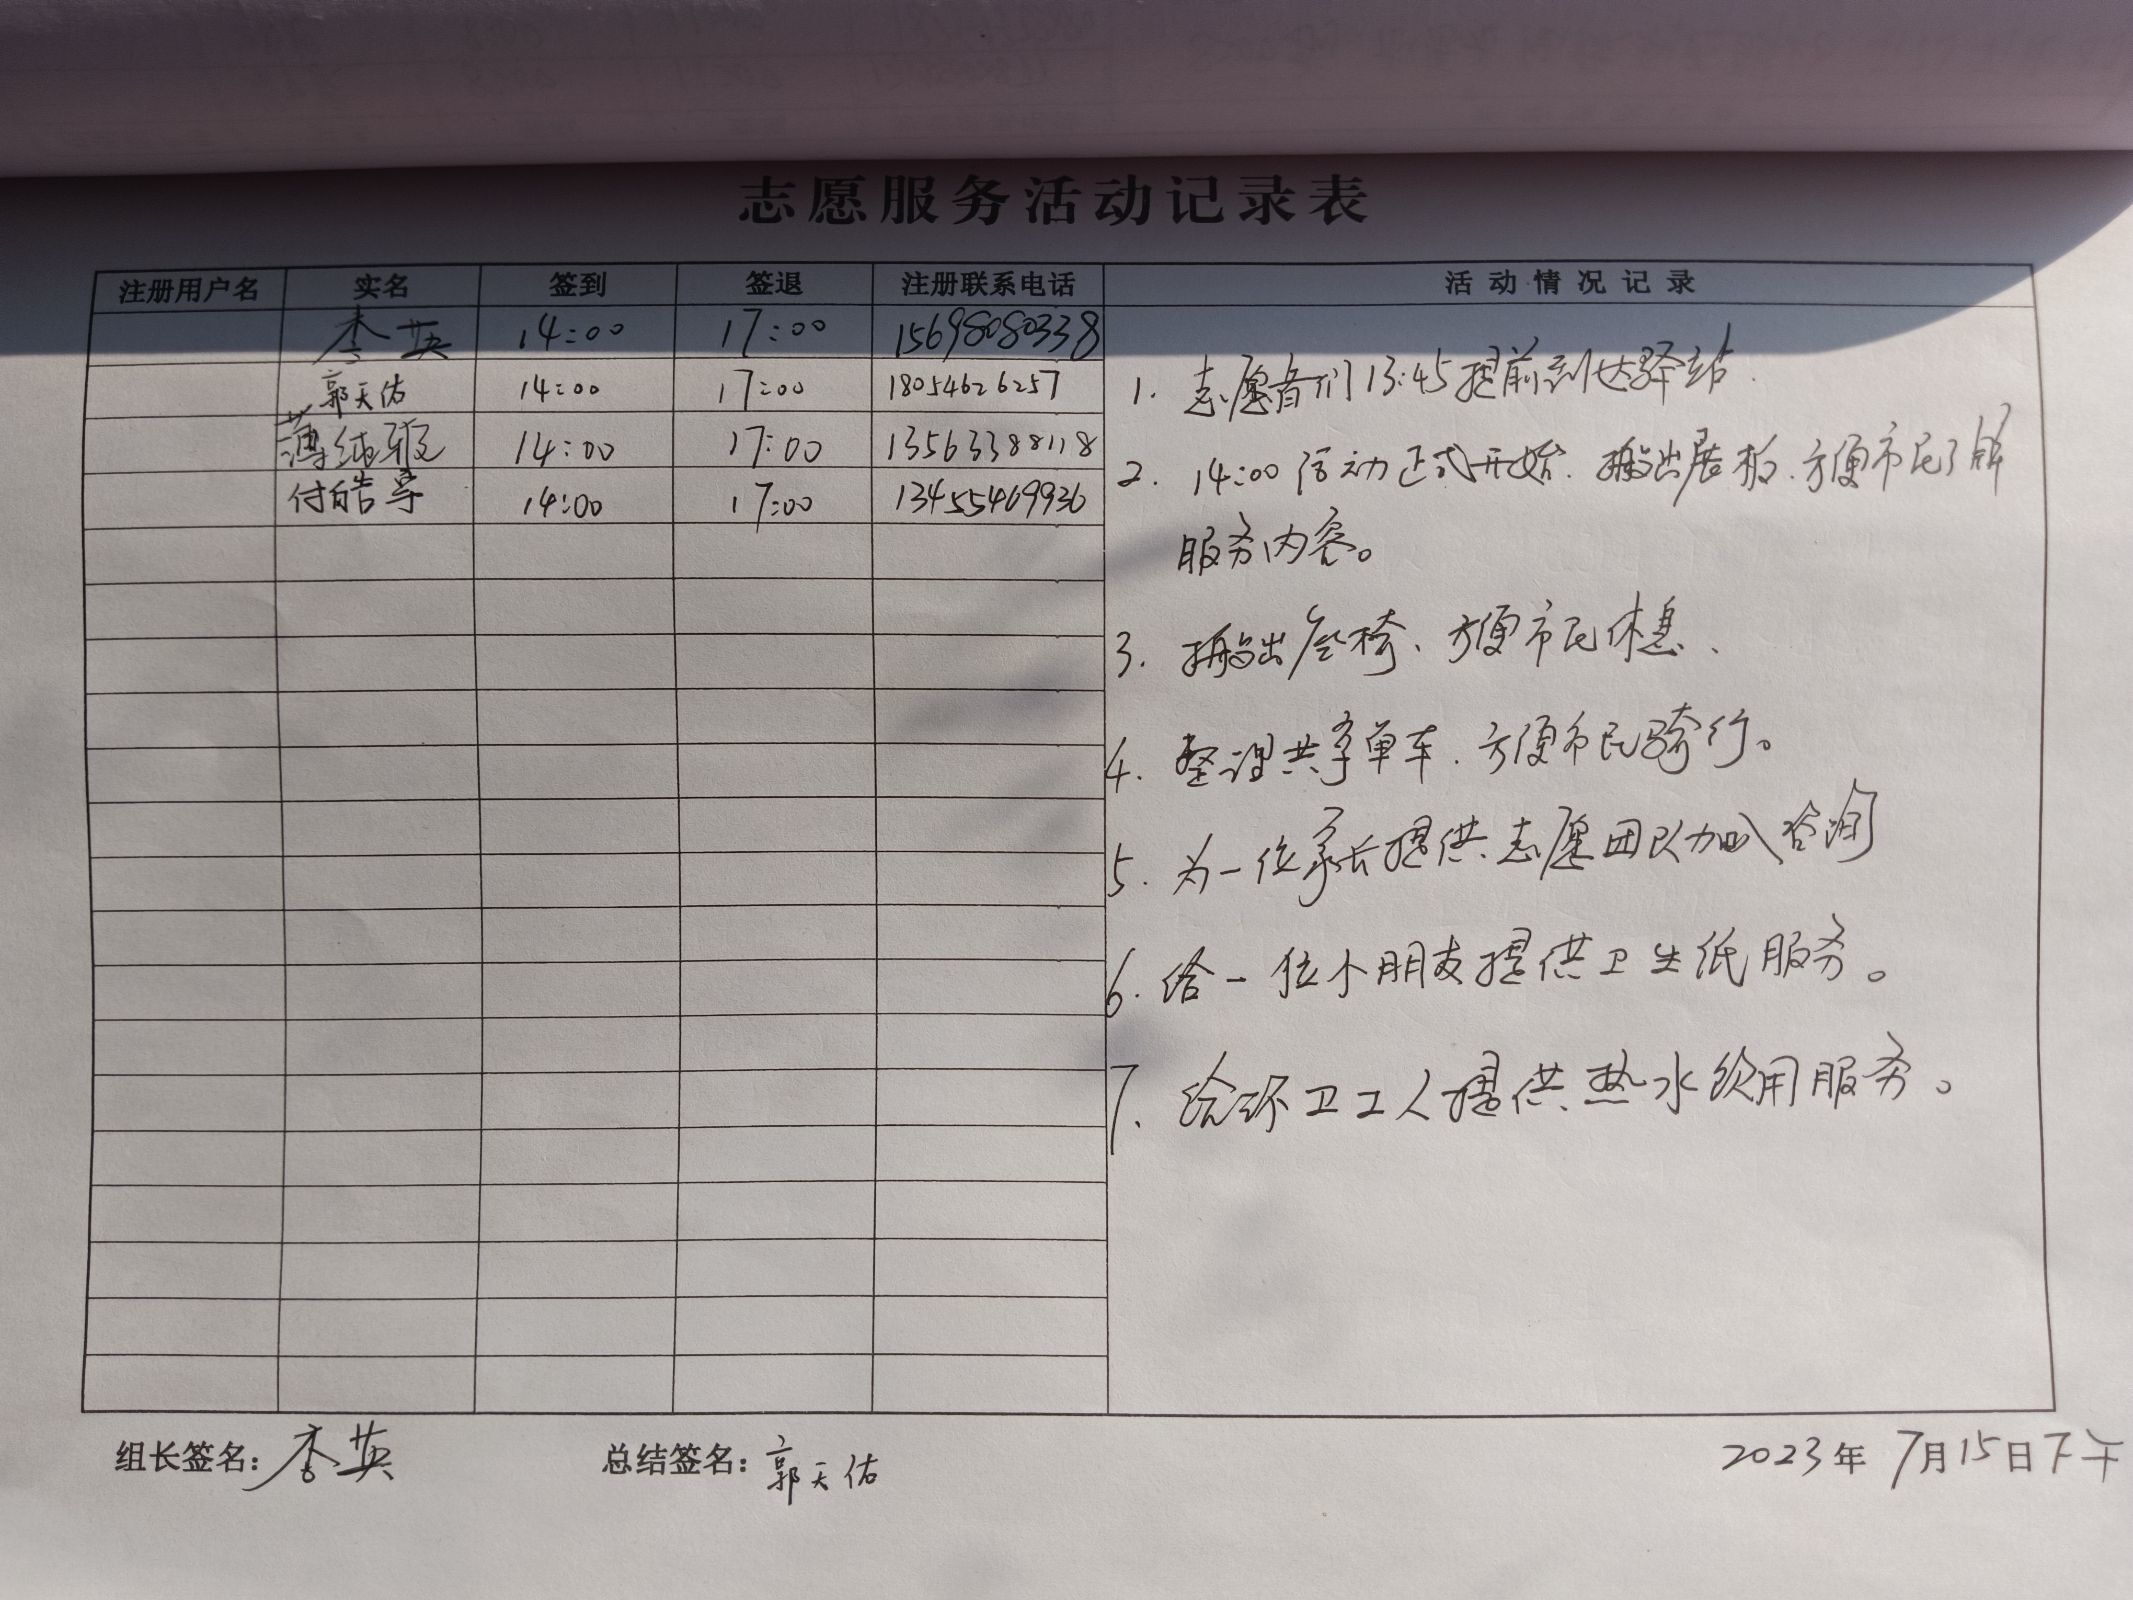 志愿服务活动记录表
注册用户名 实名 签到 签退 注册联系电话 活动情况记录
李英 14:00 17:00 15698080338
郭天佑 14:00 17:00 18054626257
薄纯 14:00 17:00 13563388118
付皓宇 14:00 17:00 13455469936
1. 志愿者们13:45提前到达驿站.
2. 14:00活动正式开始.搬出展板.方便市民了解
服务内容。
3. 搬出座椅、方便市民休息、
4. 整理共享单车.方便市民骑行。
5. 为一位家长提供志愿团队加入咨询
6. 给一位小朋友提供卫生纸服务。
7. 给环卫工人提供热水饮用服务。
组长签名：李英 总结签名：郭天佑 2023年7月15日下午